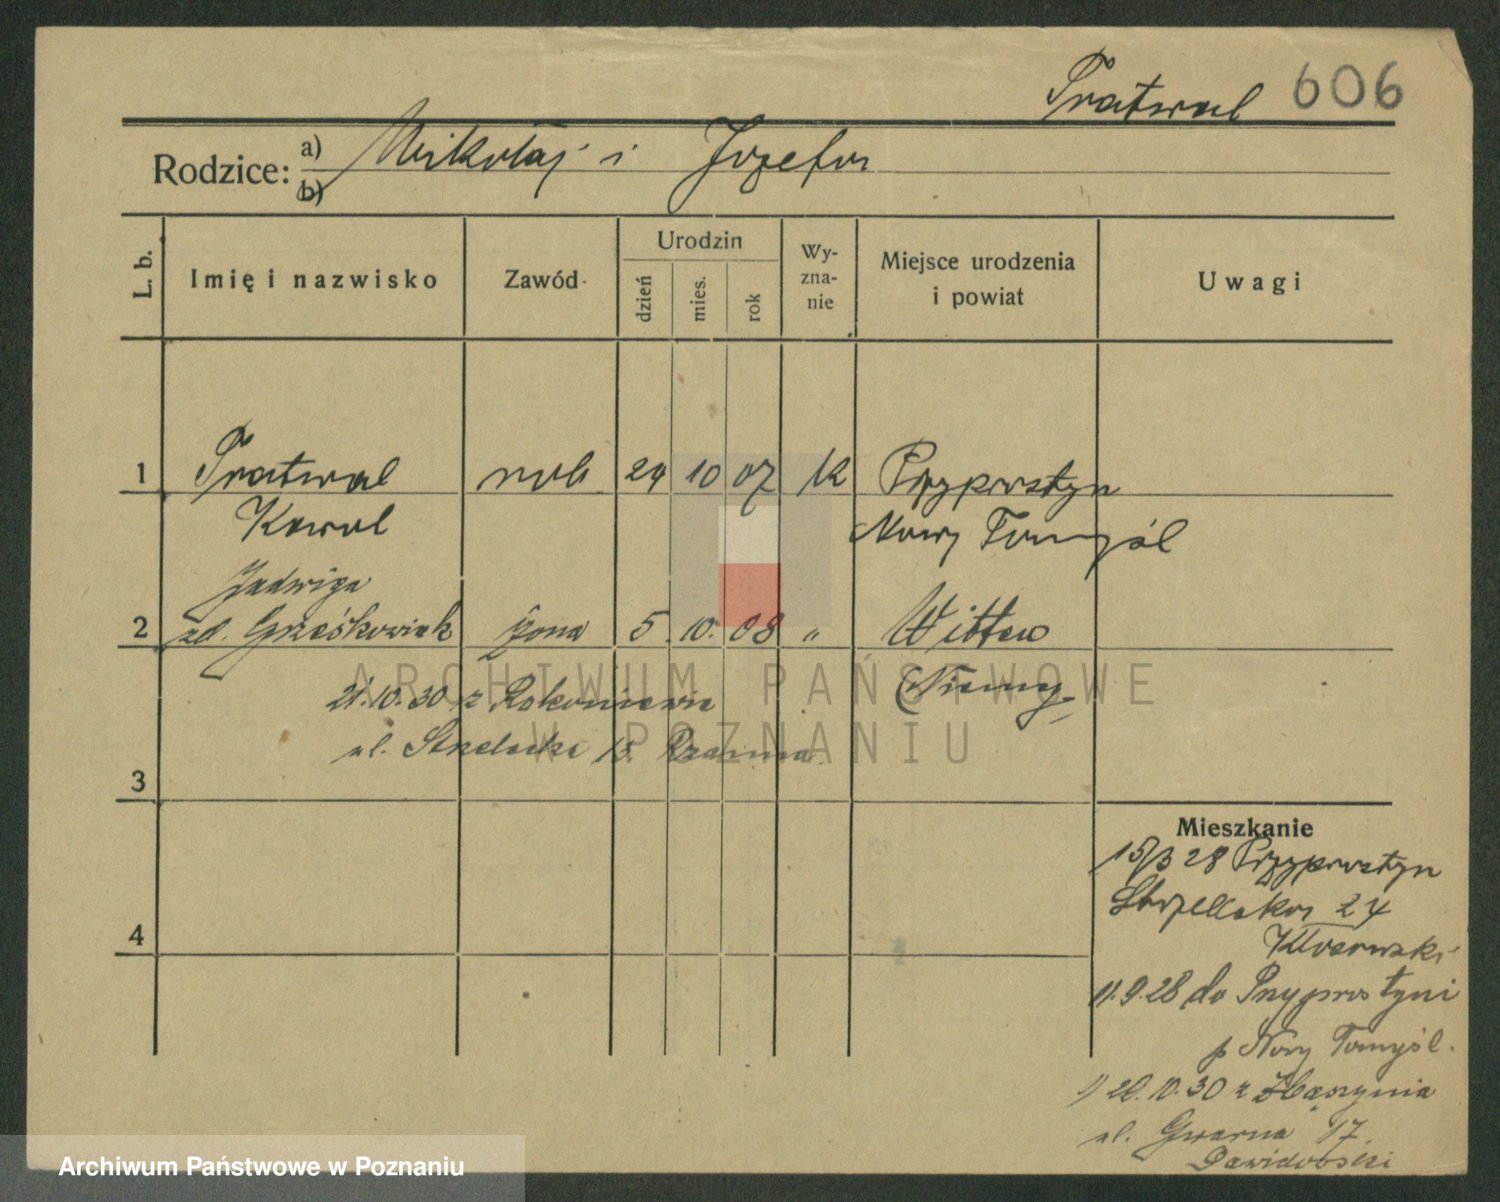 Pratwal 606
Rodzice: a) b) Mikołaj i Józefa
L. b. Imię i nazwisko Zawód Urodzin dzień mies. rok Wyznanie Miejsce urodzenia i powiat Uwagi
1 Pratwal rob 24 10 07 k Przyprostyn
Karol Nowy Tomyśl
Jadwiga
2 zd. Grześkowiak żona 5. 10. 08 " Witten
(Niemcy
21.10.30 z Rakoniewic
ul. Strzelecka 13
3
Mieszkanie
15/3 28 Przyprostyn
Strzelecka 24
4
11.9.28 do Przyprostyni
p Nowy Tomyśl.
10.30 z Zbąszynia
ul. Gwarna 17.
Dawidowski
ARCHIWUM PAŃSTWOWE
W POZNANIU
Archiwum Państwowe w Poznaniu